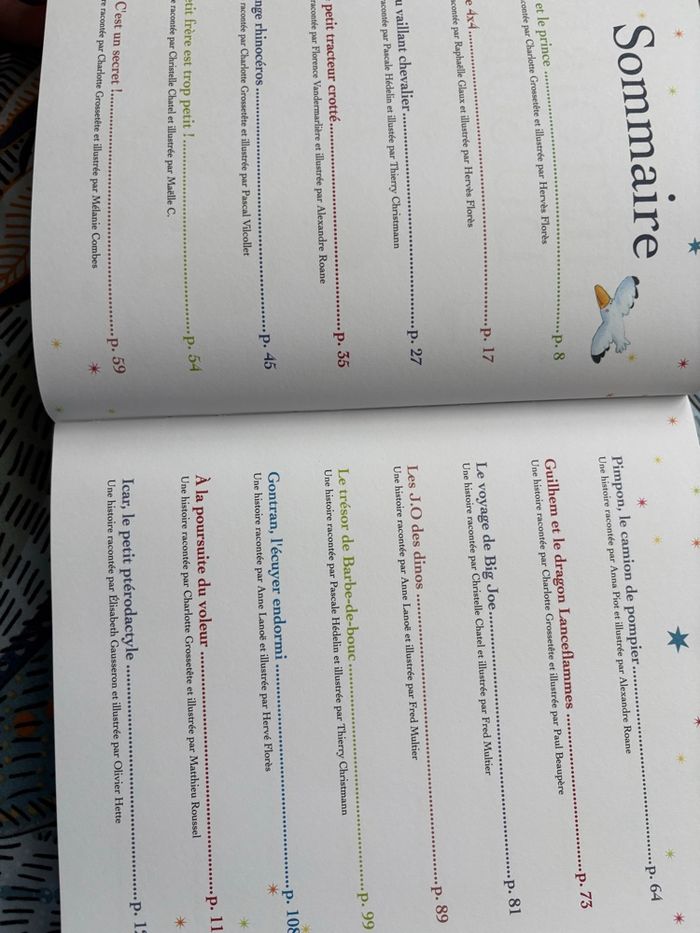 Sommaire
et le prince ........ p. 8
contée par Charlotte Grossetête et illustrée par Hervés Florès
e 4x4 ........ p. 17
contée par Raphaëlle Glaux et illustrée par Hervés Florès
u vaillant chevalier ........ p. 27
acontée par Pascale Hédelin et illustée par Thierry Christmann
petit tracteur crotté ........ p. 35
racontée par Florence Vandermarlière et illustrée par Alexandre Roane
nge rhinocéros ........ p. 45
racontée par Charlotte Grossetête et illustrée par Pascal Vilcollet
etit frère est trop petit ! ........ p. 54
e racontée par Christelle Chatel et illustrée par Maëlle C.
C'est un secret ! ........ p. 59
re racontée par Charlotte Grossetête et illustrée par Mélanie Combes
Pimpon, le camion de pompier ........ p. 64
Une histoire racontée par Anna Piot et illustrée par Alexandre Roane
Guilhem et le dragon Lanceflammes ........ p. 73
Une histoire racontée par Charlotte Grossetête et illustrée par Paul Beaupère
Le voyage de Big Joe ........ p. 81
Une histoire racontée par Christelle Chatel et illustrée par Fred Multier
Les J.O des dinos ........ p. 89
Une histoire racontée par Anne Lanoë et illustrée par Fred Multier
Le trésor de Barbe-de-bouc ........ p. 99
Une histoire racontée par Pascale Hédelin et illustrée par Thierry Christmann
Gontran, l'écuyer endormi ........ p. 108
Une histoire racontée par Anne Lanoë et illustrée par Hervé Florès
À la poursuite du voleur ........ p. 11
Une histoire racontée par Charlotte Grossetête et illustrée par Matthieu Roussel
Icar, le petit ptérodactyle ........ p. 1
Une histoire racontée par Élisabeth Gausseron et illustrée par Olivier Hette